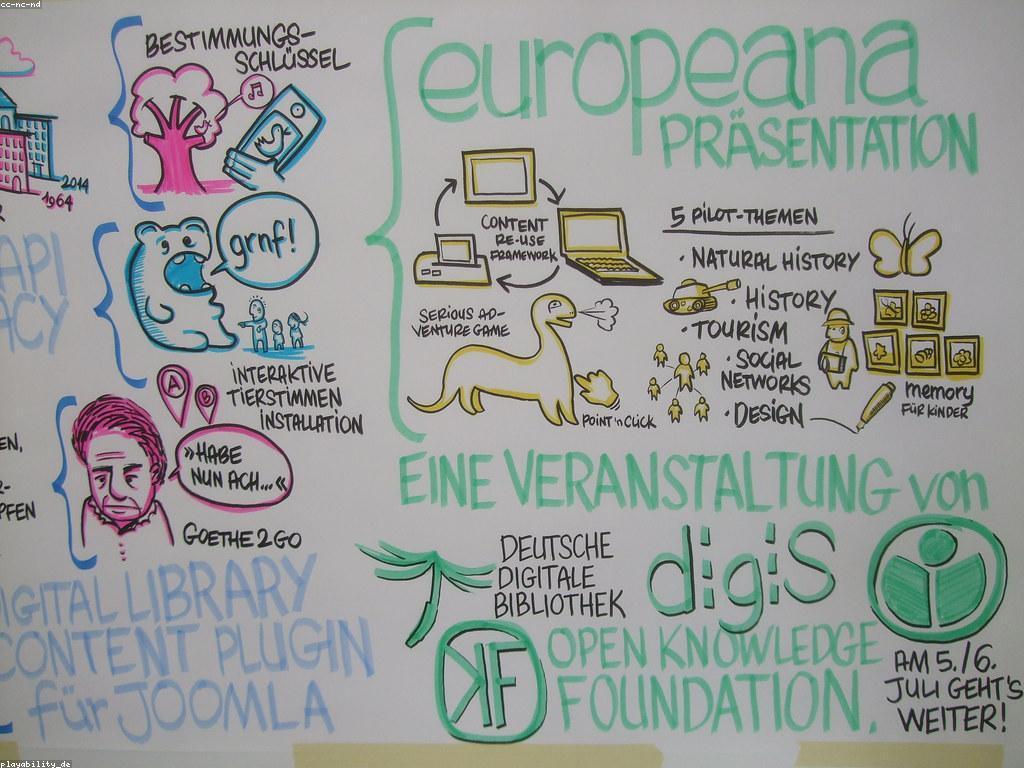 cc-nc-nd
BESTIMMUNGS-
SCHLÜSSEL
2014
1964
API
ACY
grnf!
INTERAKTIVE
TIERSTIMMEN
INSTALLATION
A
B
»HABE
NUN ACH...«
GOETHE2GO
EN,
PFEN
DIGITAL LIBRARY
CONTENT PLUGIN
für JOOMLA
europeana
PRÄSENTATION
CONTENT
RE-USE
FRAMEWORK
SERIOUS AD-
VENTURE GAME
POINT'n CLICK
5 PILOT-THEMEN
· NATURAL HISTORY
· HISTORY
· TOURISM
· SOCIAL
NETWORKS
· DESIGN
memory
FÜR KINDER
EINE VERANSTALTUNG von
DEUTSCHE
DIGITALE
BIBLIOTHEK
digiS
KF
OPEN KNOWLEDGE
FOUNDATION.
AM 5./6.
JULI GEHT'S
WEITER!
playability_de